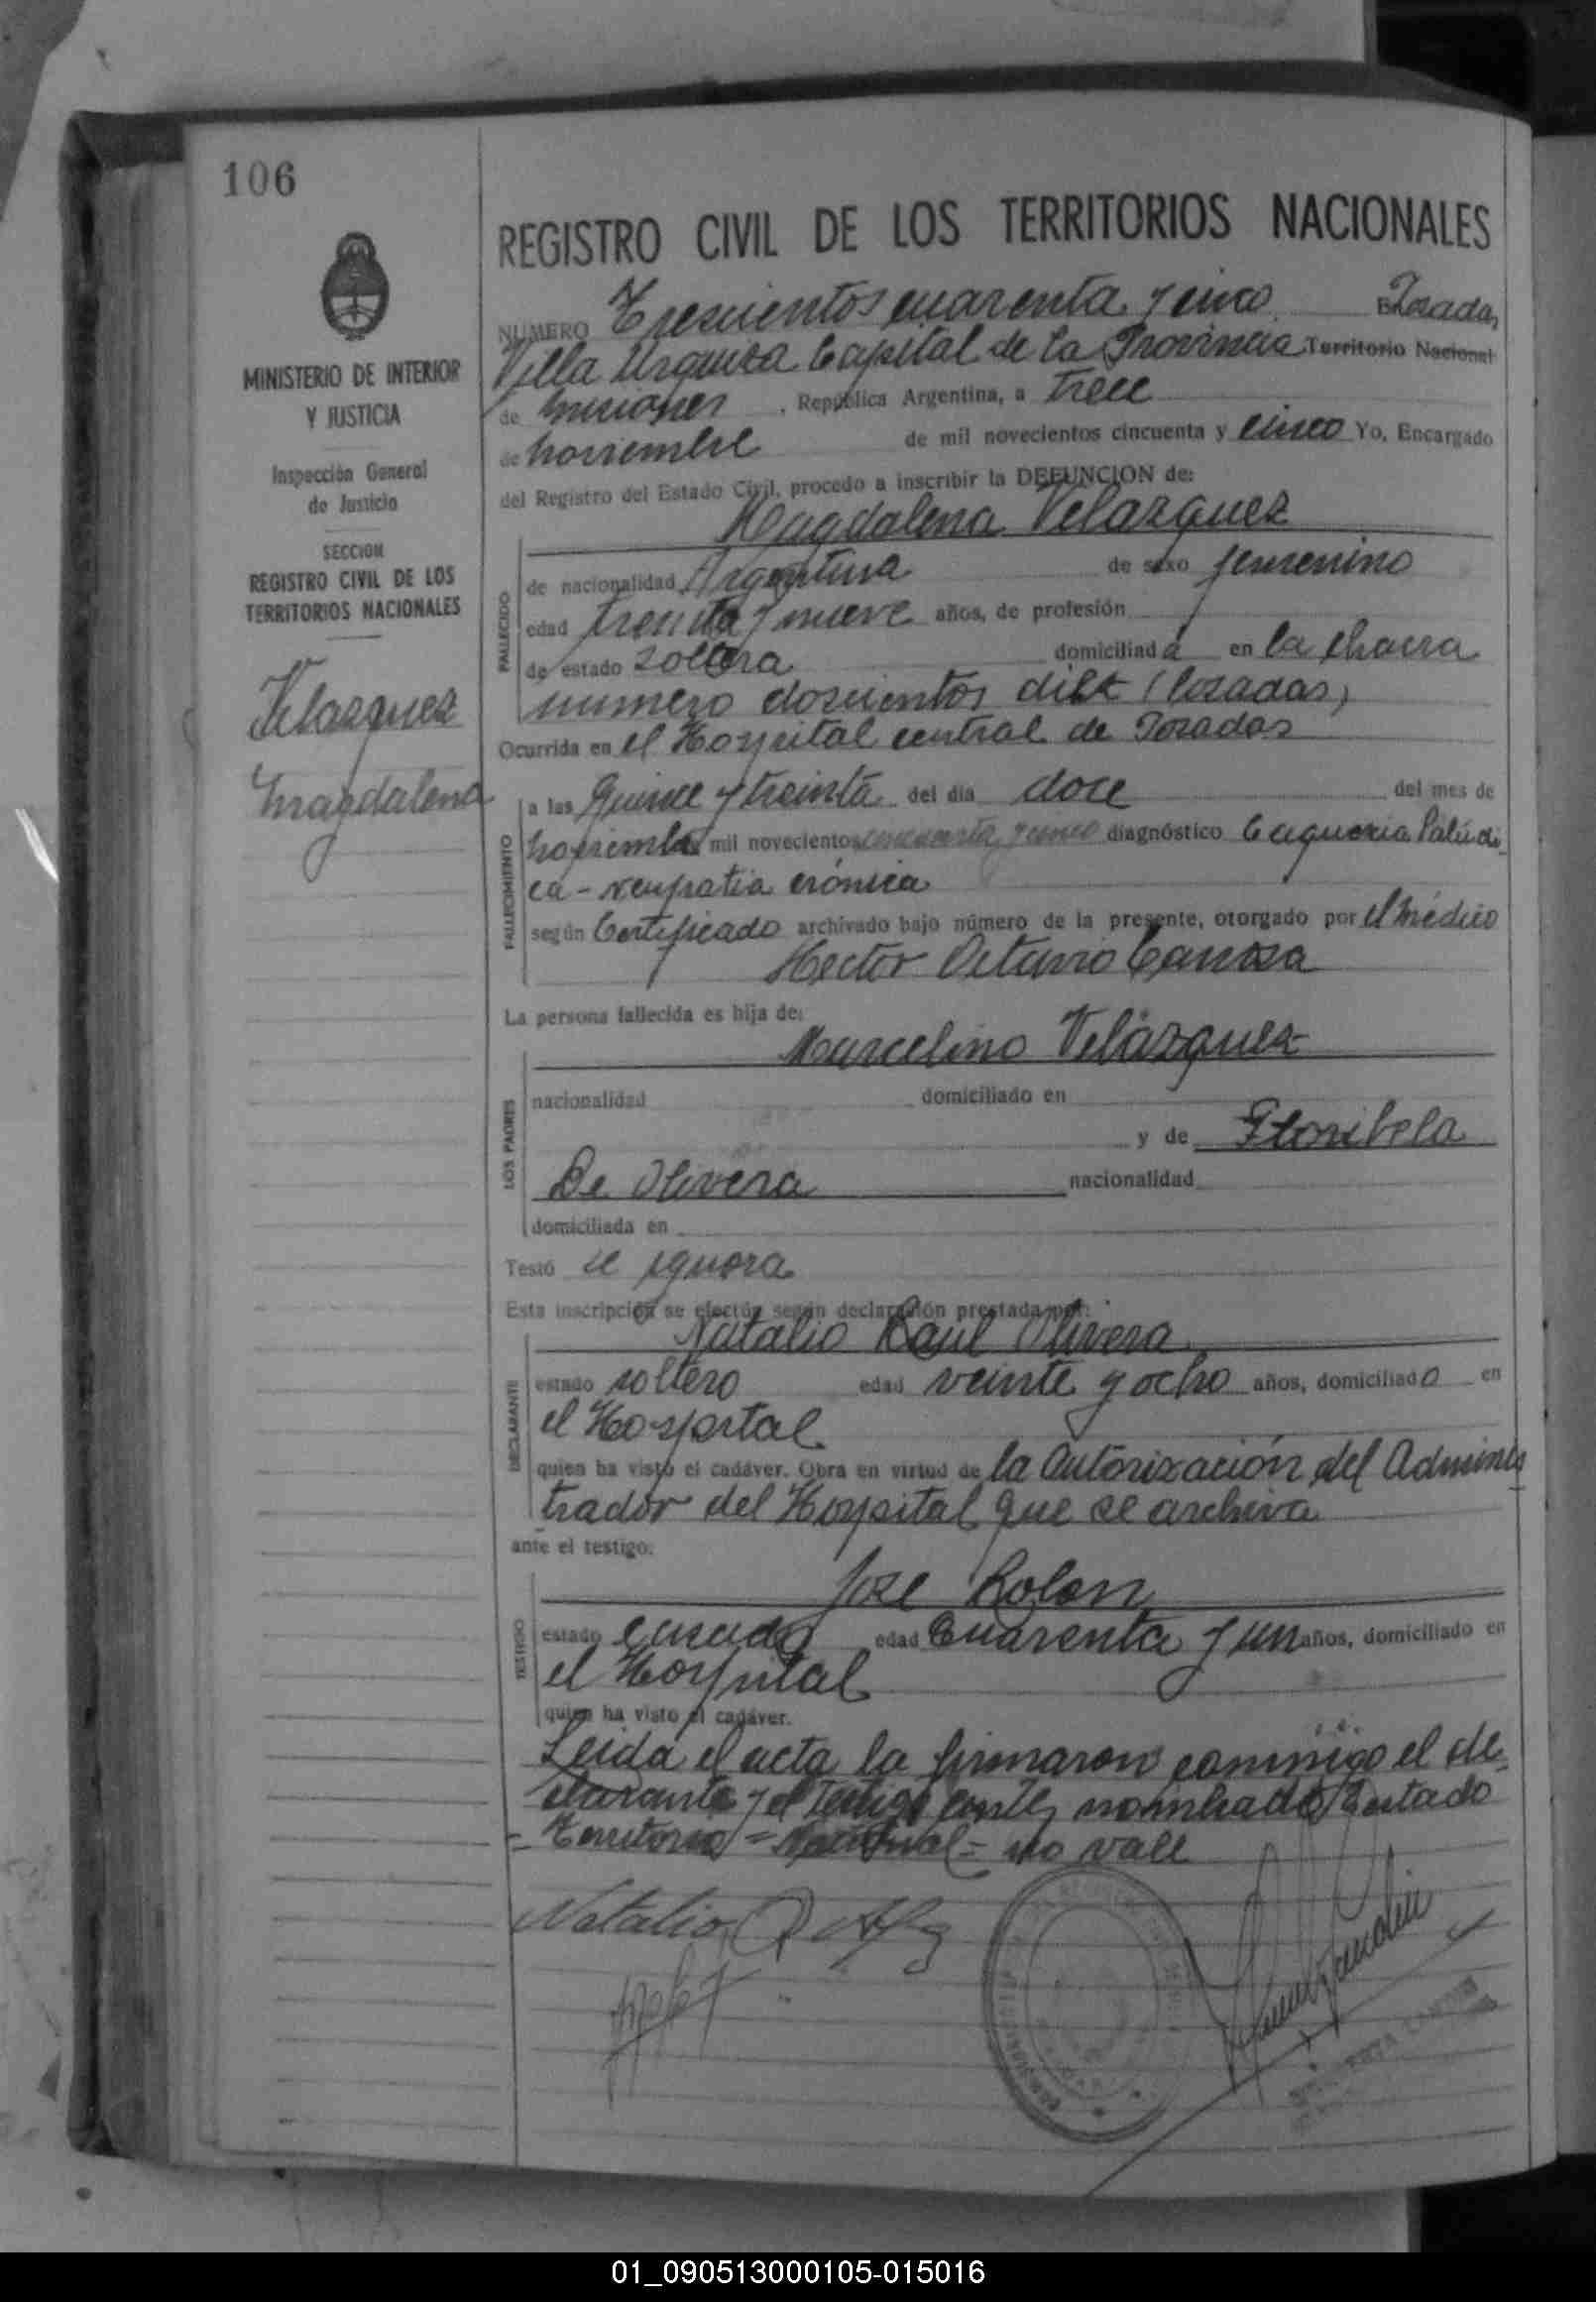 106
MINISTERIO DE INTERIOR
Y JUSTICIA
Inspección General
de Justicia
SECCION
REGISTRO CIVIL DE LOS
TERRITORIOS NACIONALES
Velazquez
Magdalena
REGISTRO CIVIL DE LOS TERRITORIOS NACIONALES
NUMERO Trescientos cuarenta y cinco Posadas,
Villa Urquiza Capital de la Provincia Territorio Nacional
de Misiones, República Argentina, a trece
de noviembre de mil novecientos cincuenta y cinco Yo, Encargado
del Registro del Estado Civil, procedo a inscribir la DEFUNCION de:
Magdalena Velazquez
FALLECIDO
de nacionalidad Argentina de sexo femenino
edad treinta y nueve años, de profesión
de estado soltera domiciliada en la chacra
numero doscientos diez (Posadas)
Ocurrida en el Hospital central de Posadas
FALLECIMIENTO
a las Quince y treinta del día doce del mes de
noviembre mil novecientos cincuenta y cinco diagnóstico Caquexia Palúdi-
ca - neufratia crónica
según Certificado archivado bajo número de la presente, otorgado por el médico
Hector Octavio
La persona fallecida es hija de:
LOS PADRES
Marcelino Velázquez
nacionalidad domiciliado en
y de Floribela
De Olivera nacionalidad
domiciliada en
Testó se ignora
Esta inscripción se efectúa según declaración prestada por:
DECLARANTE
Natalio Raul Olivera
estado soltero edad veinte y ocho años, domiciliado en
el Hospital
quien ha visto el cadáver. Obra en virtud de la Autorización del Adminis
trador del Hospital que se archiva
ante el testigo:
TESTIGO
Jose Rolon
estado casado edad Cuarenta y un años, domiciliado en
el Hospital
quien ha visto el cadáver.
Leida el acta la firmaron conmigo el de-
clarante y el testigo nombrado Testado
- Territorio = Nacional = no vale
Natalio
01_090513000105-015016